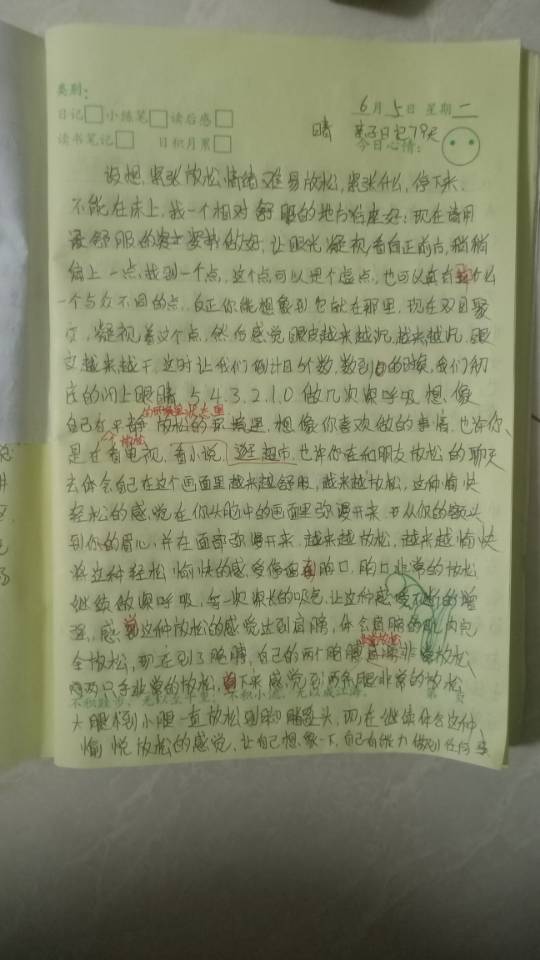 类别：
日记 小练笔 读后感
6月5日 星期二
读书笔记 日积月累
晴 亲子日记79天
今日心情：
设想，紧张放松情绪，难易放松，紧张什么，停下来，
不能在床上，找一个相对舒服的地方估座好；现在请用
最舒服的姿势做好，让眼光凝视看自正前方，稍稍
偏上一点，找到一个点，这个点可以是个虚点，也可以真有什么
一个与众不同的点，自正你能想象到它就在那里，现在双目聚
，凝视着这个点，然后感觉眼皮越来越沉，越来越沉，眼
越来越干，这时让我们倒计日个数，数到的时候，我们彻
底的闭上眼睛，5.4.3.2.1.0 做几次深呼吸，想像
的环境里状态里
自己在平静放松的环境里，想像你喜欢做的事情，也许你
放松
是在看电视，看小说，逛超市，也许你在和朋友放松的聊天
去体会自己在这个画面里越来越舒服，越来越放松，这种愉快
轻松的感觉在你头脑中的画面里弥漫开来，从你的额头
到你的眉心，并在面部弥漫开来，越来越放松，越来越愉快
将这种轻松愉快的感受像面到胸口，胸口非常的放松
继续做深呼吸，每一次深长的吸气，让这种感受不断的增
强，感觉这种放松的感觉达到肩膀，体会肩膀的肌肉完
非常放松
全放松，现在到了胳膊，自己的两个胳膊非常放松
两只手非常的放松，下来感觉到两条腿非常的放松
大腿到小腿一直放松到脚趾头，现在继续体会这种
愉悦放松的感觉，让自己想象一下，自己有能力做到任何事